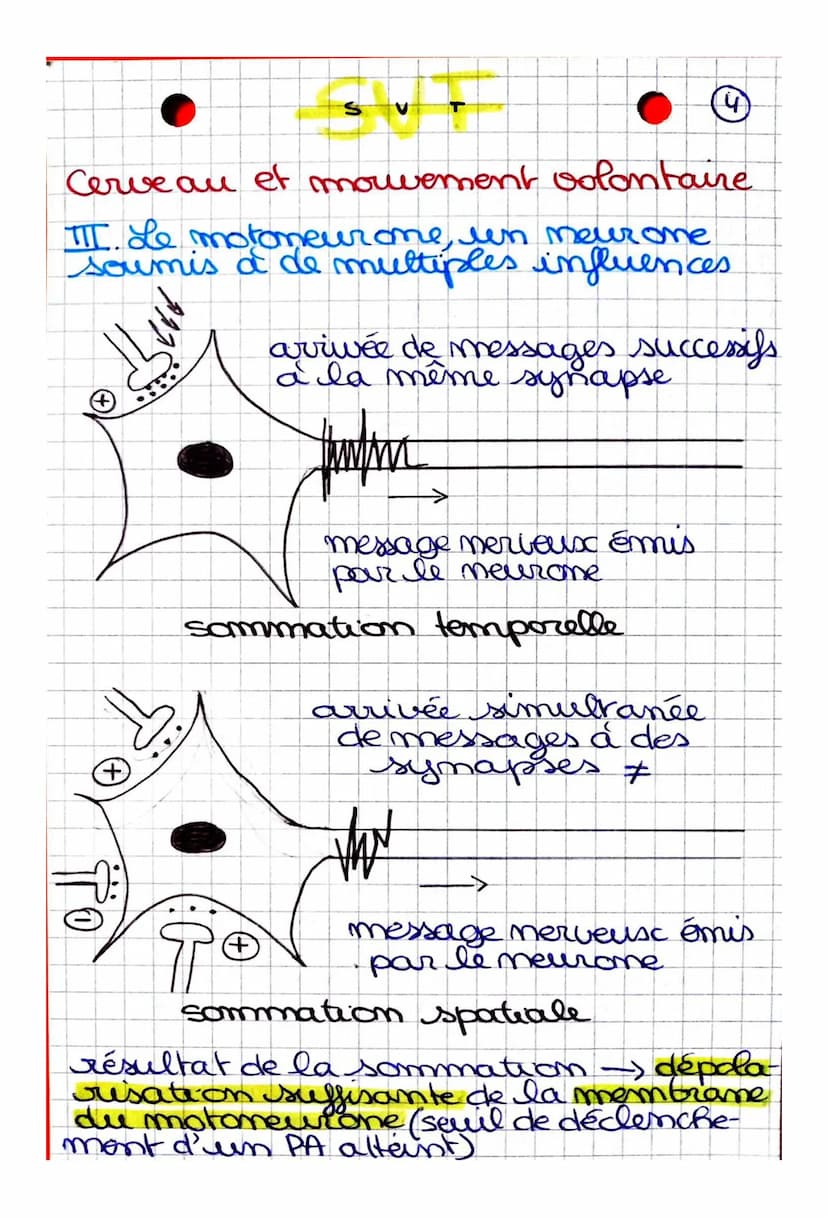 SVT
S V T
4
Cerveau et mouvement volontaire
III. Le motoneurone, un neurone
soumis à de multiples influences
arrivée de messages successifs
à la même synapse
+
message nerveux émis
par le neurone
sommation temporelle
arrivée simultanée
de messages à des
synapses ≠
+
−
+
message nerveux émis
par le neurone
sommation spatiale
résultat de la sommation → dépola-
risation suffisante de la membrane
du motoneurone (seuil de déclenche-
ment d'un PA atteint)